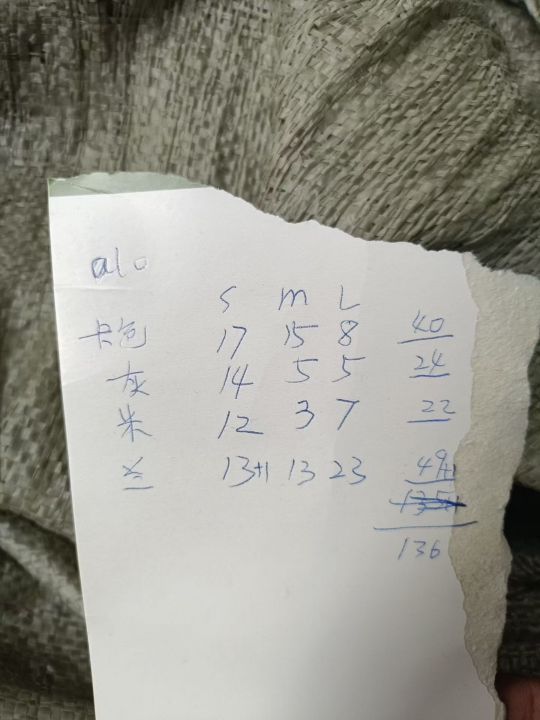 alo
S M L
卡色 17 15 8 40
灰 14 5 5 24
米 12 3 7 22
兰 13+1 13 23 49+1
135+1
136